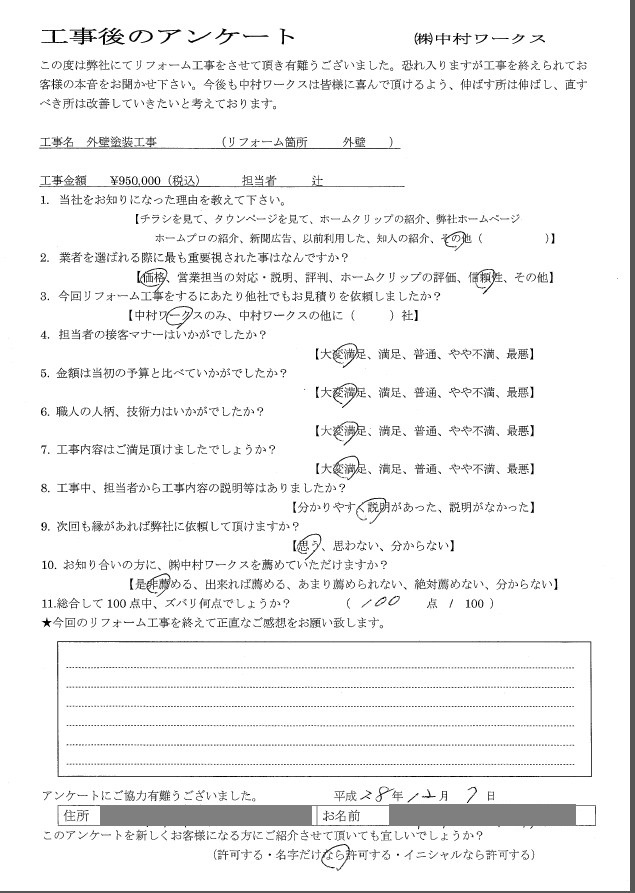 工事後のアンケート　㈱中村ワークス
この度は弊社にてリフォーム工事をさせて頂き有難うございました。恐れ入りますが工事を終えられてお
客様の本音をお聞かせ下さい。今後も中村ワークスは皆様に喜んで頂けるよう、伸ばす所は伸ばし、直す
べき所は改善していきたいと考えております。
工事名　外壁塗装工事　（リフォーム箇所　外壁　）
工事金額　¥950,000（税込）　担当者　辻
1. 当社をお知りになった理由を教えて下さい。
【チラシを見て、タウンページを見て、ホームクリップの紹介、弊社ホームページ
ホームプロの紹介、新聞広告、以前利用した、知人の紹介、その他（　　）】
2. 業者を選ばれる際に最も重要視された事はなんですか？
【価格、営業担当の対応・説明、評判、ホームクリップの評価、信頼性、その他】
3. 今回リフォーム工事をするにあたり他社でもお見積りを依頼しましたか？
【中村ワークスのみ、中村ワークスの他に（　　）社】
4. 担当者の接客マナーはいかがでしたか？
【大変満足、満足、普通、やや不満、最悪】
5. 金額は当初の予算と比べていかがでしたか？
【大変満足、満足、普通、やや不満、最悪】
6. 職人の人柄、技術力はいかがでしたか？
【大変満足、満足、普通、やや不満、最悪】
7. 工事内容はご満足頂けましたでしょうか？
【大変満足、満足、普通、やや不満、最悪】
8. 工事中、担当者から工事内容の説明等はありましたか？
【分かりやすく説明があった、説明がなかった】
9. 次回も縁があれば弊社に依頼して頂けますか？
【思う、思わない、分からない】
10. お知り合いの方に、㈱中村ワークスを薦めていただけますか？
【是非薦める、出来れば薦める、あまり薦められない、絶対薦めない、分からない】
11.総合して 100 点中、ズバリ何点でしょうか？　（ 100 点 / 100 ）
★今回のリフォーム工事を終えて正直なご感想をお願い致します。
アンケートにご協力有難うございました。　平成 28 年 12 月 7 日
住所　お名前
このアンケートを新しくお客様になる方にご紹介させて頂いても宜しいでしょうか？
（許可する・名字だけなら許可する・イニシャルなら許可する）